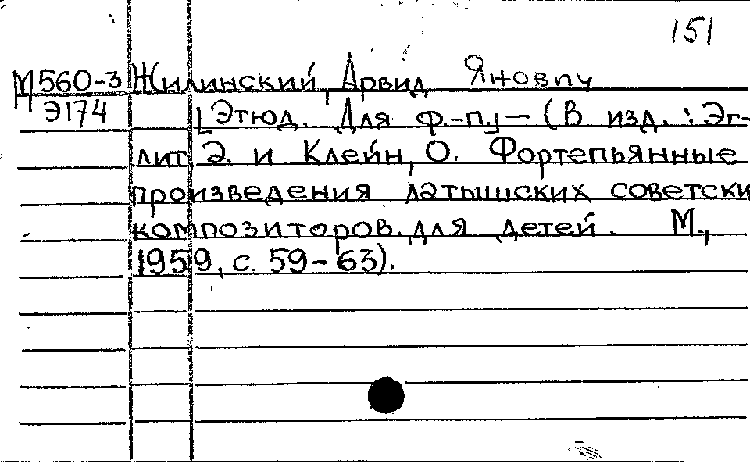 151
М560-3 Жилинский, Арвид Яновпч
Э174 [Этюд. Для ф.-п.] — (В изд.: Эг-
лит Э. и Клейн, О. Фортепьянные
произведения латышских советски
композиторов для детей. М.,
1959, с. 59-63).